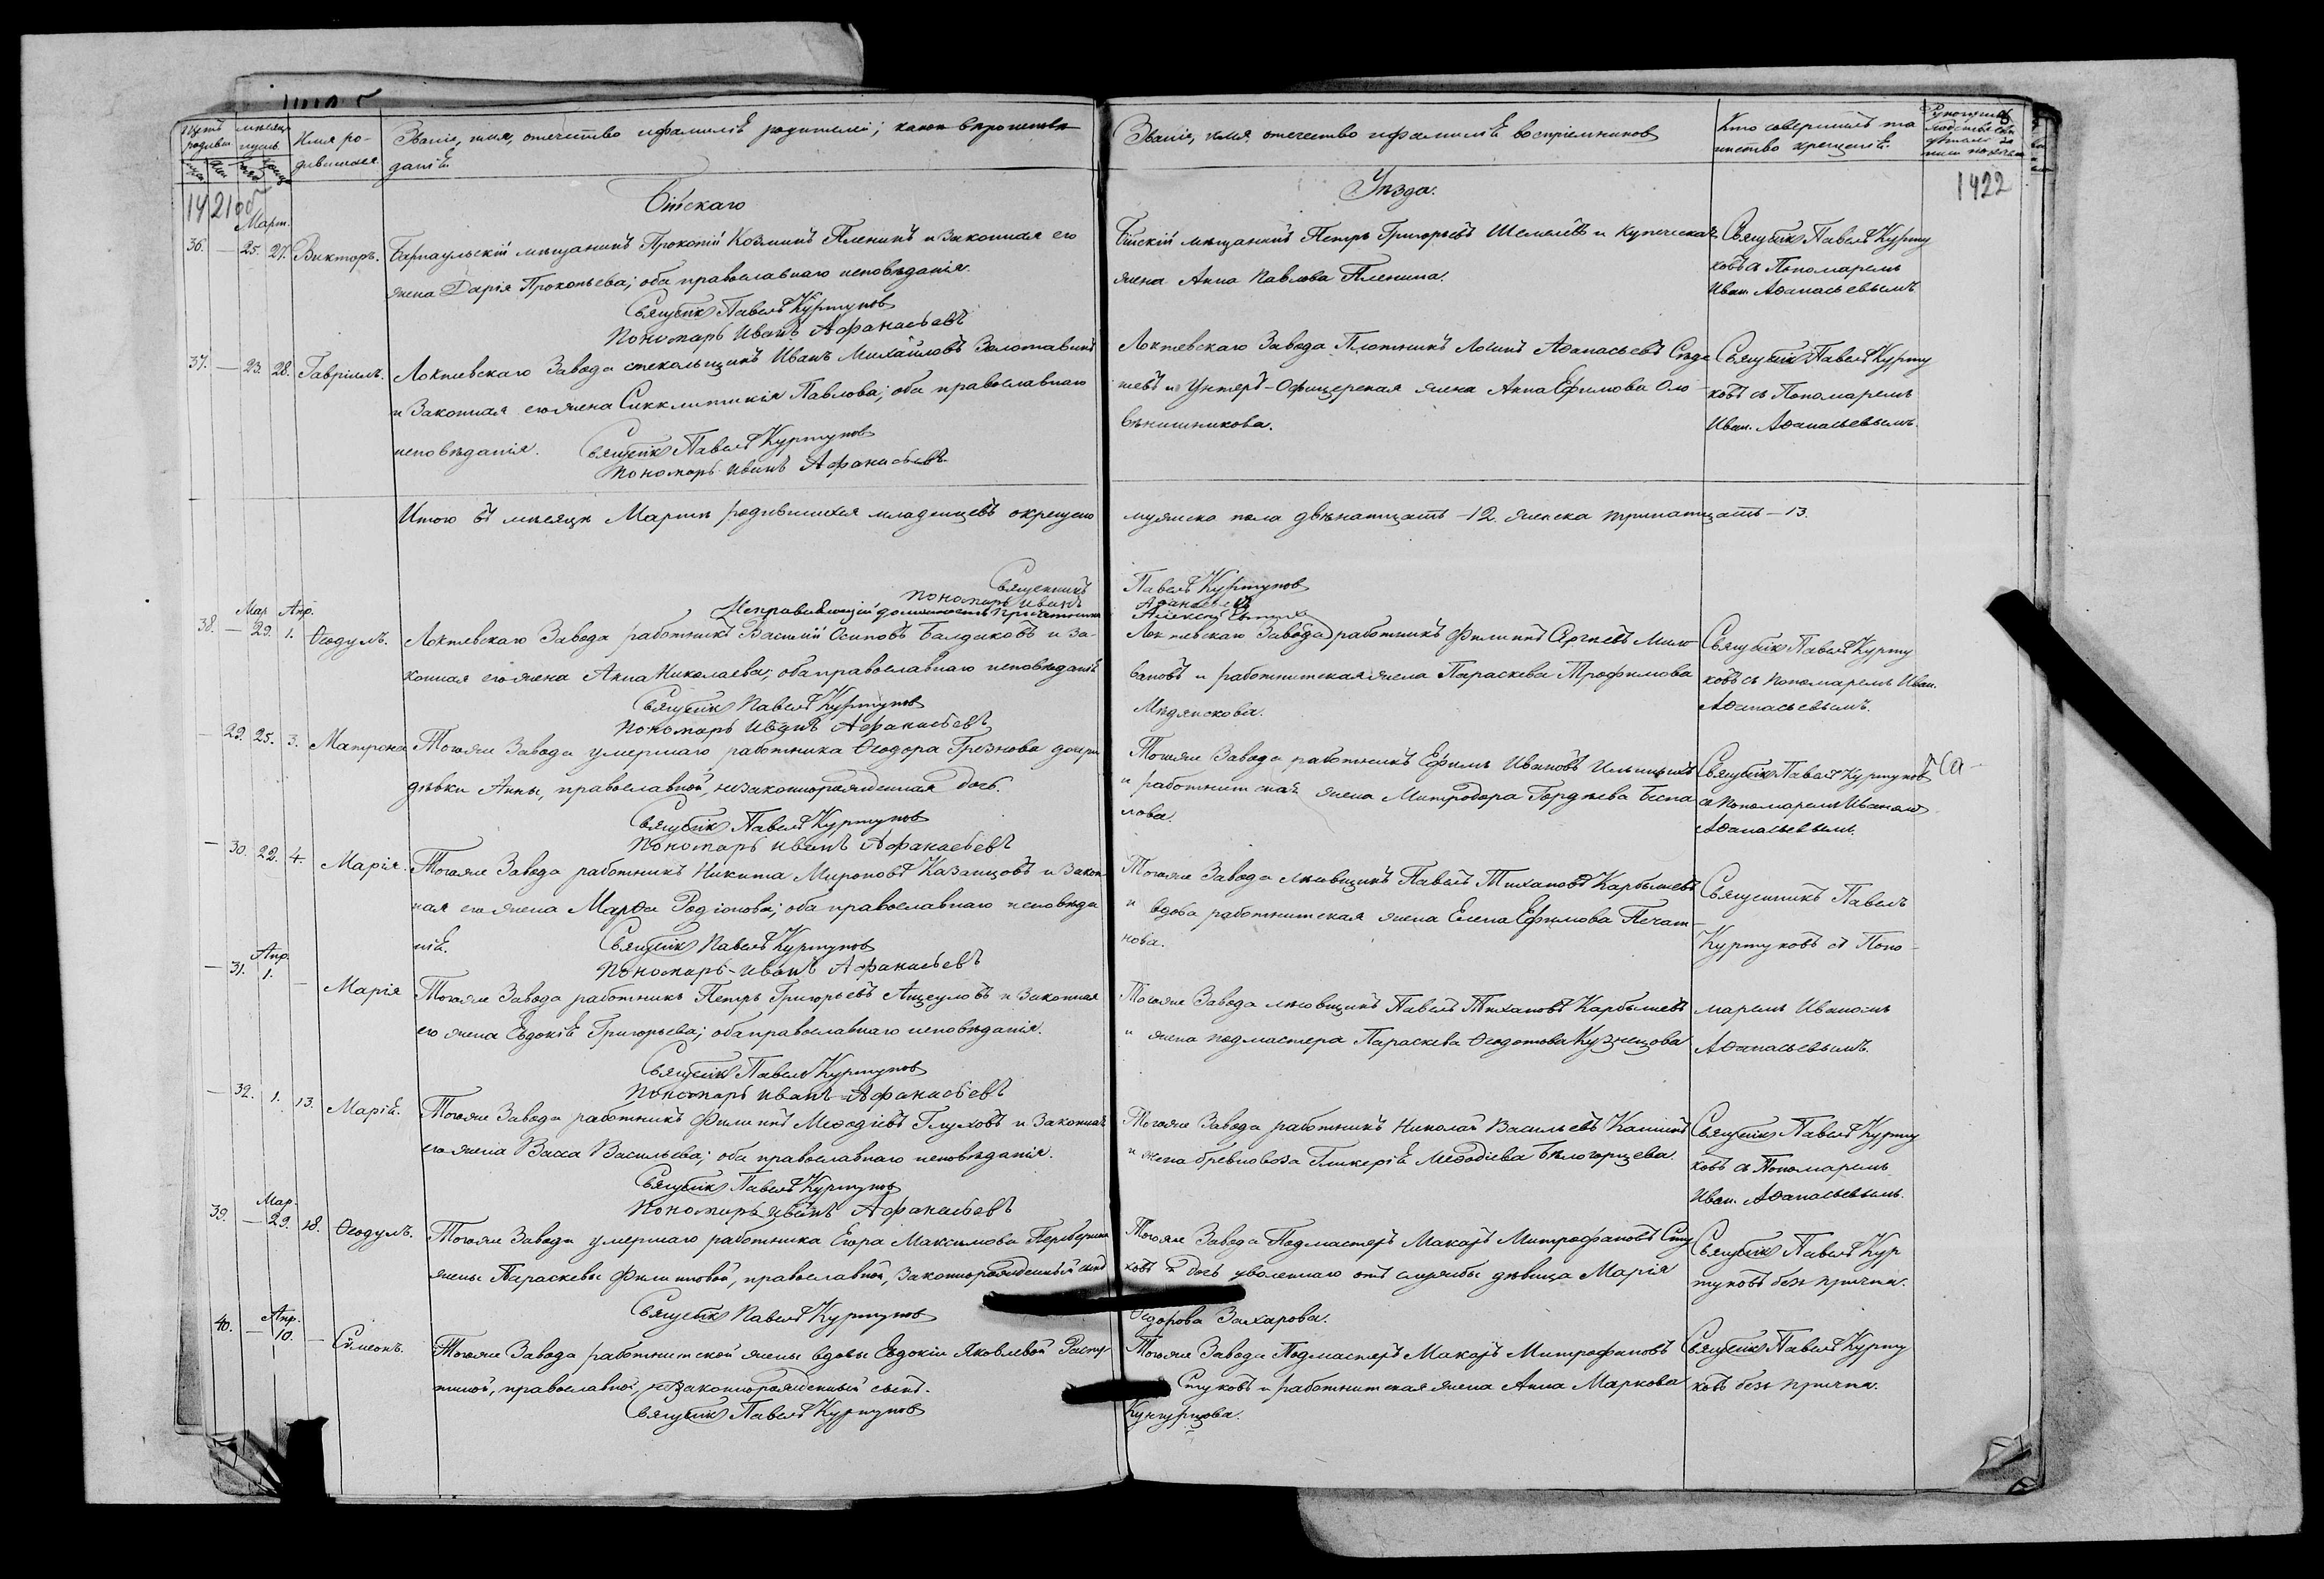 Звание, имя, отечество и фамилія родителей; какого вѣроисповѣ
данія.
Имя ро-
дившихся.
1421об
Бійскаго
Март.
36. — 25. 27. Викторъ. Барнаульскій мѣщанинъ Прокопій Козминъ Пленинъ и законная его
жена Дарія Прокопьева; оба православнаго исповѣданія.
Священникъ Павелъ Куртуковъ
Пономарь Иванъ Афанасьевъ
37. — 23. 28. Гавріилъ. Локтевскаго Завода стекольщикъ Иванъ Михайловъ
и законная его жена Синклитикія Павлова; оба православнаго
исповѣданія. Священникъ Павелъ Куртуковъ
Пономарь Иванъ Афанасьевъ
Итого въ мѣсяцѣ Мартѣ родившихся младенцевъ окрещено
Священникъ
Пономарь Иванъ
Исправляющій должность причетника
Мар. Апр.
38. — 29. 1. Ѳеодулъ. Локтевскаго Завода работникъ Василій Осиповъ Балдаковъ и за-
конная его жена Анна Николаева; оба православнаго исповѣданія
Священникъ Павелъ Куртуковъ
Пономарь Иванъ Афанасьевъ
— 29. 25. 3. Матрона Тогоже Завода умершаго работника Ѳеодора Грезнова дочери
дѣвки Анны, православной, незаконнорожденная дочь.
Священникъ Павелъ Куртуковъ
Пономарь Иванъ Афанасьевъ
— 30. 22. 4. Марія. Тогоже Завода работникъ Никита Мироновъ Казанцовъ и закон
ная его жена Марѳа Родіонова; оба православнаго исповѣда
нія. Священникъ Павелъ Куртуковъ
Пономарь Иванъ Афанасьевъ
Апр.
— 31. 1. — Марія Тогоже Завода работникъ Петръ Григорьевъ и законная
его жена Евдокія Григорьева; оба православнаго исповѣданія.
Священникъ Павелъ Куртуковъ
Пономарь Иванъ Афанасьевъ
— 32. 1. 13. Марія. Тогоже Завода работникъ Филиппъ Меѳодіевъ Глуховъ и законная
его жена Васса Васильева; оба православнаго исповѣданія.
Священникъ Павелъ Куртуковъ
Пономарь Иванъ Афанасьевъ
Мар.
39. — 29. 18. Ѳеодулъ. Тогоже Завода умершаго работника Егора Максимова
жены Параскевы Филипповой, православной, законнорожденный сынъ
Священникъ Павелъ Куртуковъ
Апр.
40. — 10. — Сѵмеонъ. Тогоже Завода работнической жены вдовы Евдокіи Яковлевой
православной, незаконнорожденный сынъ.
Священникъ Павелъ Куртуковъ
Званіе, имя, отечество и фамилія воспріемниковъ
Кто совершилъ та
инство крещенія.
Уѣзда.
1422
Бійскій мѣщанинъ Петръ Григорьевъ Шемелевъ и купеческая
жена Анна Павлова Пленина.
Священникъ Павелъ Курту
ковъ съ Пономаремъ
Иван. Аѳанасьевымъ
Локтевскаго Завода Плотникъ Логинъ Аѳанасьевъ
и Унтеръ-Офицерская жена Анна Ефимова Оло-
вянишникова.
Священникъ Павелъ Курту
ковъ съ Пономаремъ
Иван. Аѳанасьевымъ.
мужеска пола двѣнатцать — 12. женска тринатцать — 13.
Павелъ Куртуковъ
Афанасьевъ
Алексей
Локтевскаго Завода работникъ Филиппъ Сергіевъ Мило
вановъ и работническая жена Параскева Трофимова
Мѣдянскова.
Священникъ Павелъ Курту
ковъ съ Пономаремъ Иван.
Аѳанасьевымъ.
Тогоже Завода работникъ Ефимъ Ивановъ Ильиныхъ
и работническая жена Митродора Гордѣева Беспа
лова.
Священникъ Павелъ Куртуковъ
съ Пономаремъ Иваномъ
Аѳанасьевымъ.
Тогоже Завода лѣсовщикъ Павелъ Тихановъ Карбышевъ
и вдова работническая жена Елена Ефимова Печат
нова.
Священникъ Павелъ
Куртуковъ съ Поно-
Тогоже Завода лѣсовщикъ Павелъ Тихановъ Карбышевъ
и жена подмастера Параскева Ѳеодотова Кузнецова
маремъ Иваномъ
Аѳанасьевымъ.
Тогоже Завода работникъ Николай Васильевъ Кашинъ
и жена бревновоза Гликерія Меѳодіева Бѣлогорцева.
Священникъ Павелъ Курту
ковъ съ Пономаремъ
Иван. Аѳанасьевымъ.
Тогоже Завода Подмастеръ Макаръ Митрофановъ Сту
ковъ и дочь уволеннаго отъ службы дѣвица Марія
Ѳедорова Захарова.
Священникъ Павелъ Кур
туковъ безъ причта.
Тогоже Завода Подмастеръ Макаръ Митрофановъ
Стуковъ и работническая жена Анна Маркова
Кунгурцова.
Священникъ Павелъ Курту
ковъ безъ причта.